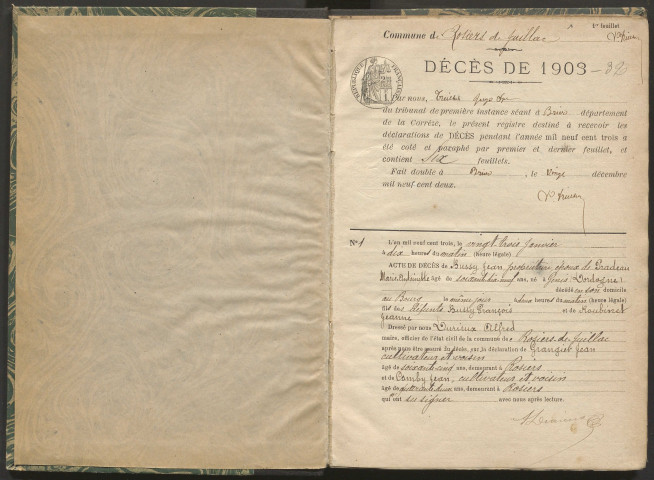 1er feuillet
Commune de Rosiers de Juillac
DÉCÈS DE 1903 - 32
RÉPUBLIQUE FRANÇAISE
Par nous,
du tribunal de première instance séant à Brive département
de la Corrèze, le présent registre destiné à recevoir les
déclarations de DÉCÈS pendant l'année mil neuf cent trois a
été coté et paraphé par premier et dernier feuillet, et
contient six feuillets.
Fait double à Brive, le vingt décembre
mil neuf cent deux.
No 1 L'an mil neuf cent trois, le vingt-trois janvier
à dix heures du matin (heure légale)
ACTE DE DÉCÈS de Bussy Jean, époux de Pradeau
Marie âgé de ans, né à (Dordogne)
décédé en son domicile
au Bourg le même jour à deux heures du matin (heure légale)
fils des défunts Bussy François et de Roubinet
Jeanne
Dressé par nous Alfred
maire, officier de l'état civil de la commune de Rosiers de Juillac
après nous être assuré du décès, sur la déclaration de Grangier Jean
cultivateur et voisin
âgé de ans, demeurant à Rosiers
et de Comby Jean, cultivateur et voisin
âgé de ans, demeurant à Rosiers
qui ont su signer avec nous après lecture.